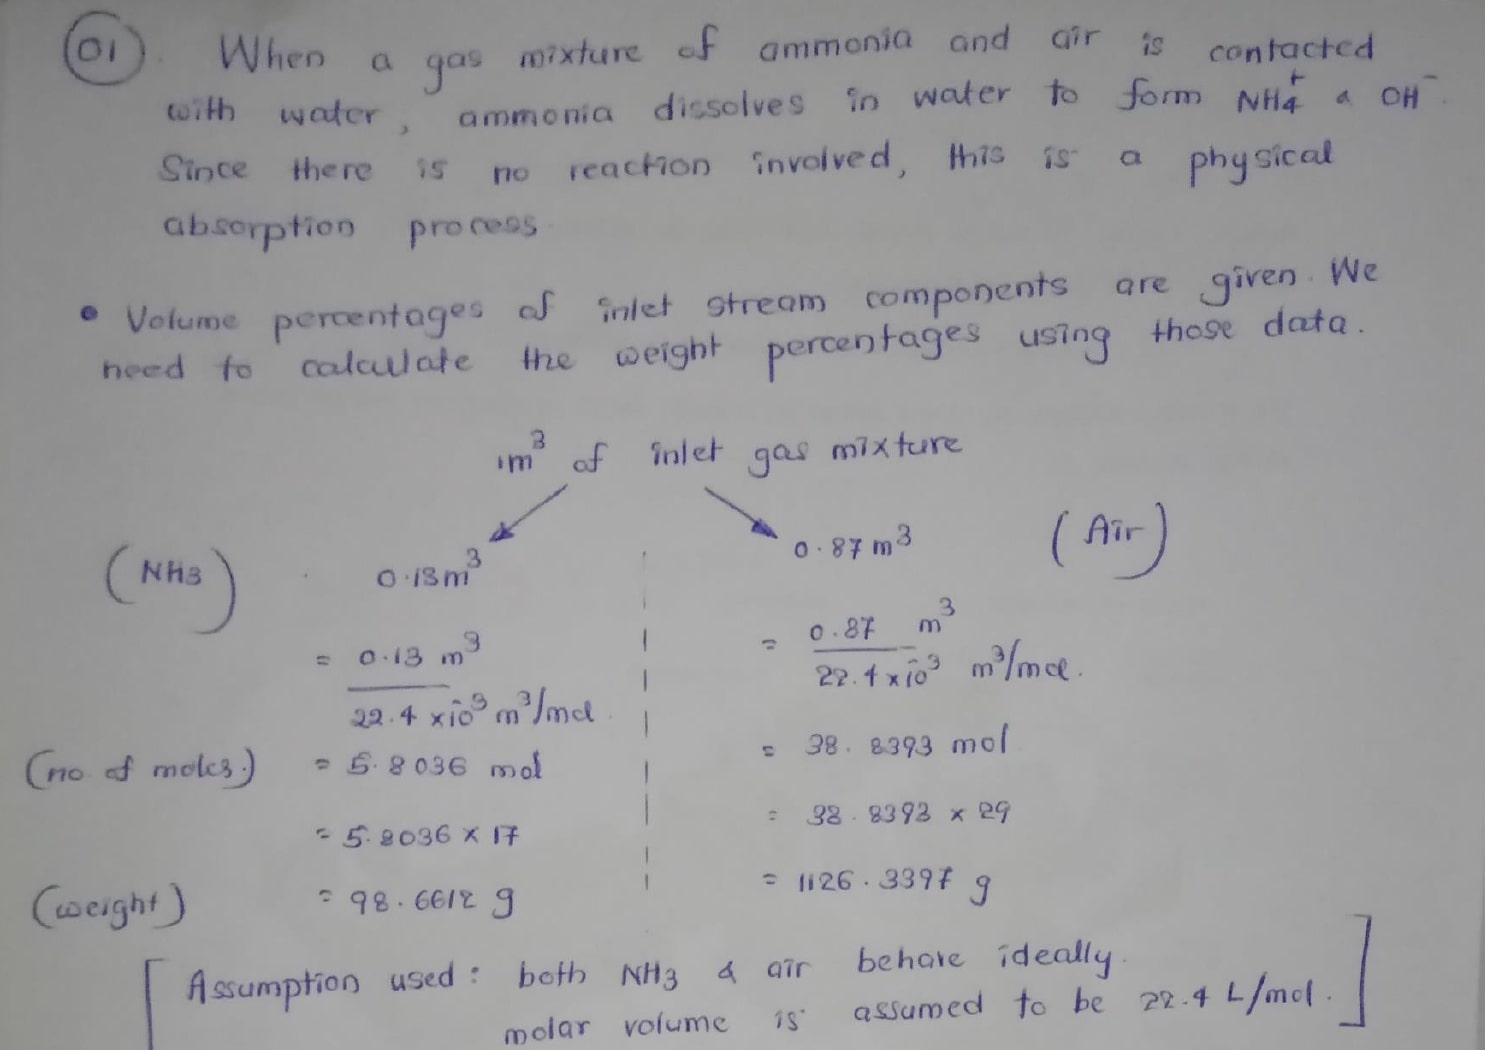 01. When a gas mixture of ammonia and air is contacted
with water, ammonia dissolves in water to form NH4+ & OH-.
Since there is no reaction involved, this is a physical
absorption process.
• Volume percentages of inlet stream components are given. We
need to calculate the weight percentages using those data.
1m³ of inlet gas mixture
(NH3) 0.13m³ 0.87 m³ (Air)
= 0.13 m³ = 0.87 m³
22.4 x10⁻³ m³/mol 22.4 x10⁻³ m³/mol.
(no of moles.) = 5.8036 mol = 38.8393 mol
= 5.8036 x 17 = 38.8393 x 29
(weight) = 98.6612 g = 1126.3397 g
[Assumption used: both NH3 & air behave ideally.
molar volume is assumed to be 22.4 L/mol.]